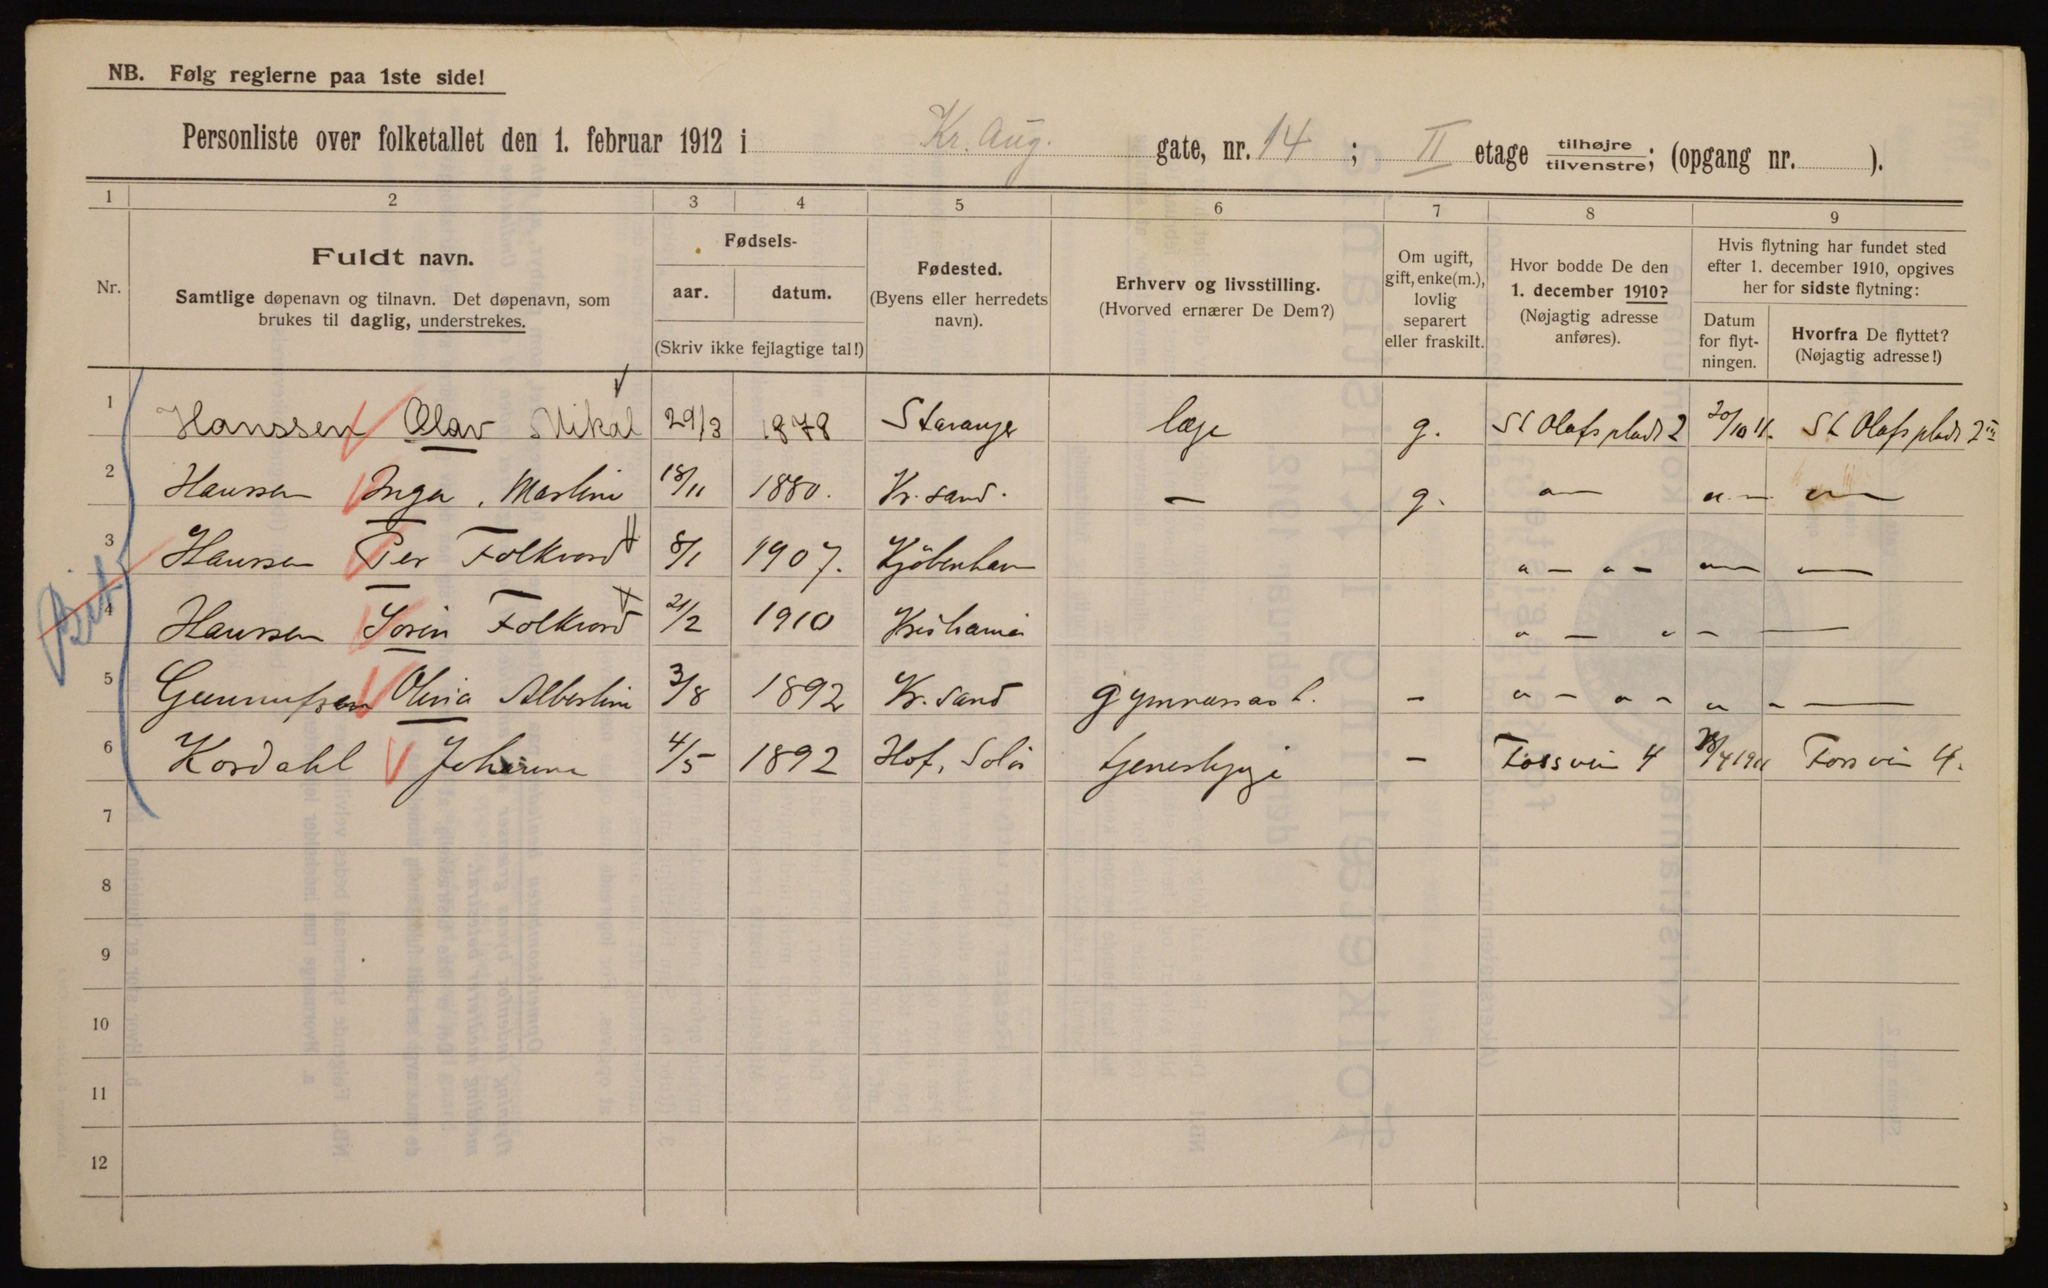 NB. Følg reglerne paa 1ste side!
Personliste over folketallet den 1. februar 1912 i Kr. Aug. gate, nr. 14 ; II etage tilhøjre tilvenstre; (opgang nr. ).
1 2 3 4 5 6 7 8 9
Nr.
Fuldt navn.
Samtlige døpenavn og tilnavn. Det døpenavn, som
brukes til daglig, understrekes.
Fødsels-
aar. datum.
(Skriv ikke fejlagtige tal!)
Fødested.
(Byens eller herredets
navn).
Erhverv og livsstilling.
(Hvorved ernærer De Dem?)
Om ugift,
gift, enke(m.),
lovlig
separert
eller fraskilt.
Hvor bodde De den
1. december 1910?
(Nøjagtig adresse
anføres).
Hvis flytning har fundet sted
efter 1. december 1910, opgives
her for sidste flytning:
Datum
for flyt-
ningen.
Hvorfra De flyttet?
(Nøjagtig adresse!)
1 Hanssen Olav Mikal 29/3 1878 Stavanger læge g. St Olafs plads 2 20/10 11. St Olafs plads 2
2 Hanssen Inga, Martine 18/11 1880. Kr. sand. — g. — " — —
3 Hanssen Per Folkvord 8/1 1907. Kjöbenhavn " — " — " — —
4 Hanssen Sören Folkvord 21/2 1910 Kristiania " — " — —
5 Gunnufsen Olivia Albertine 3/8 1892 Kr. sand gymnasiast. — " — " — " — —
6 Kordahl Johanne 4/5 1892 Hof, Solör tjenestepige — Fossvein 4 /4 1911 Fossvein 4.
7
8
9
10
11
12